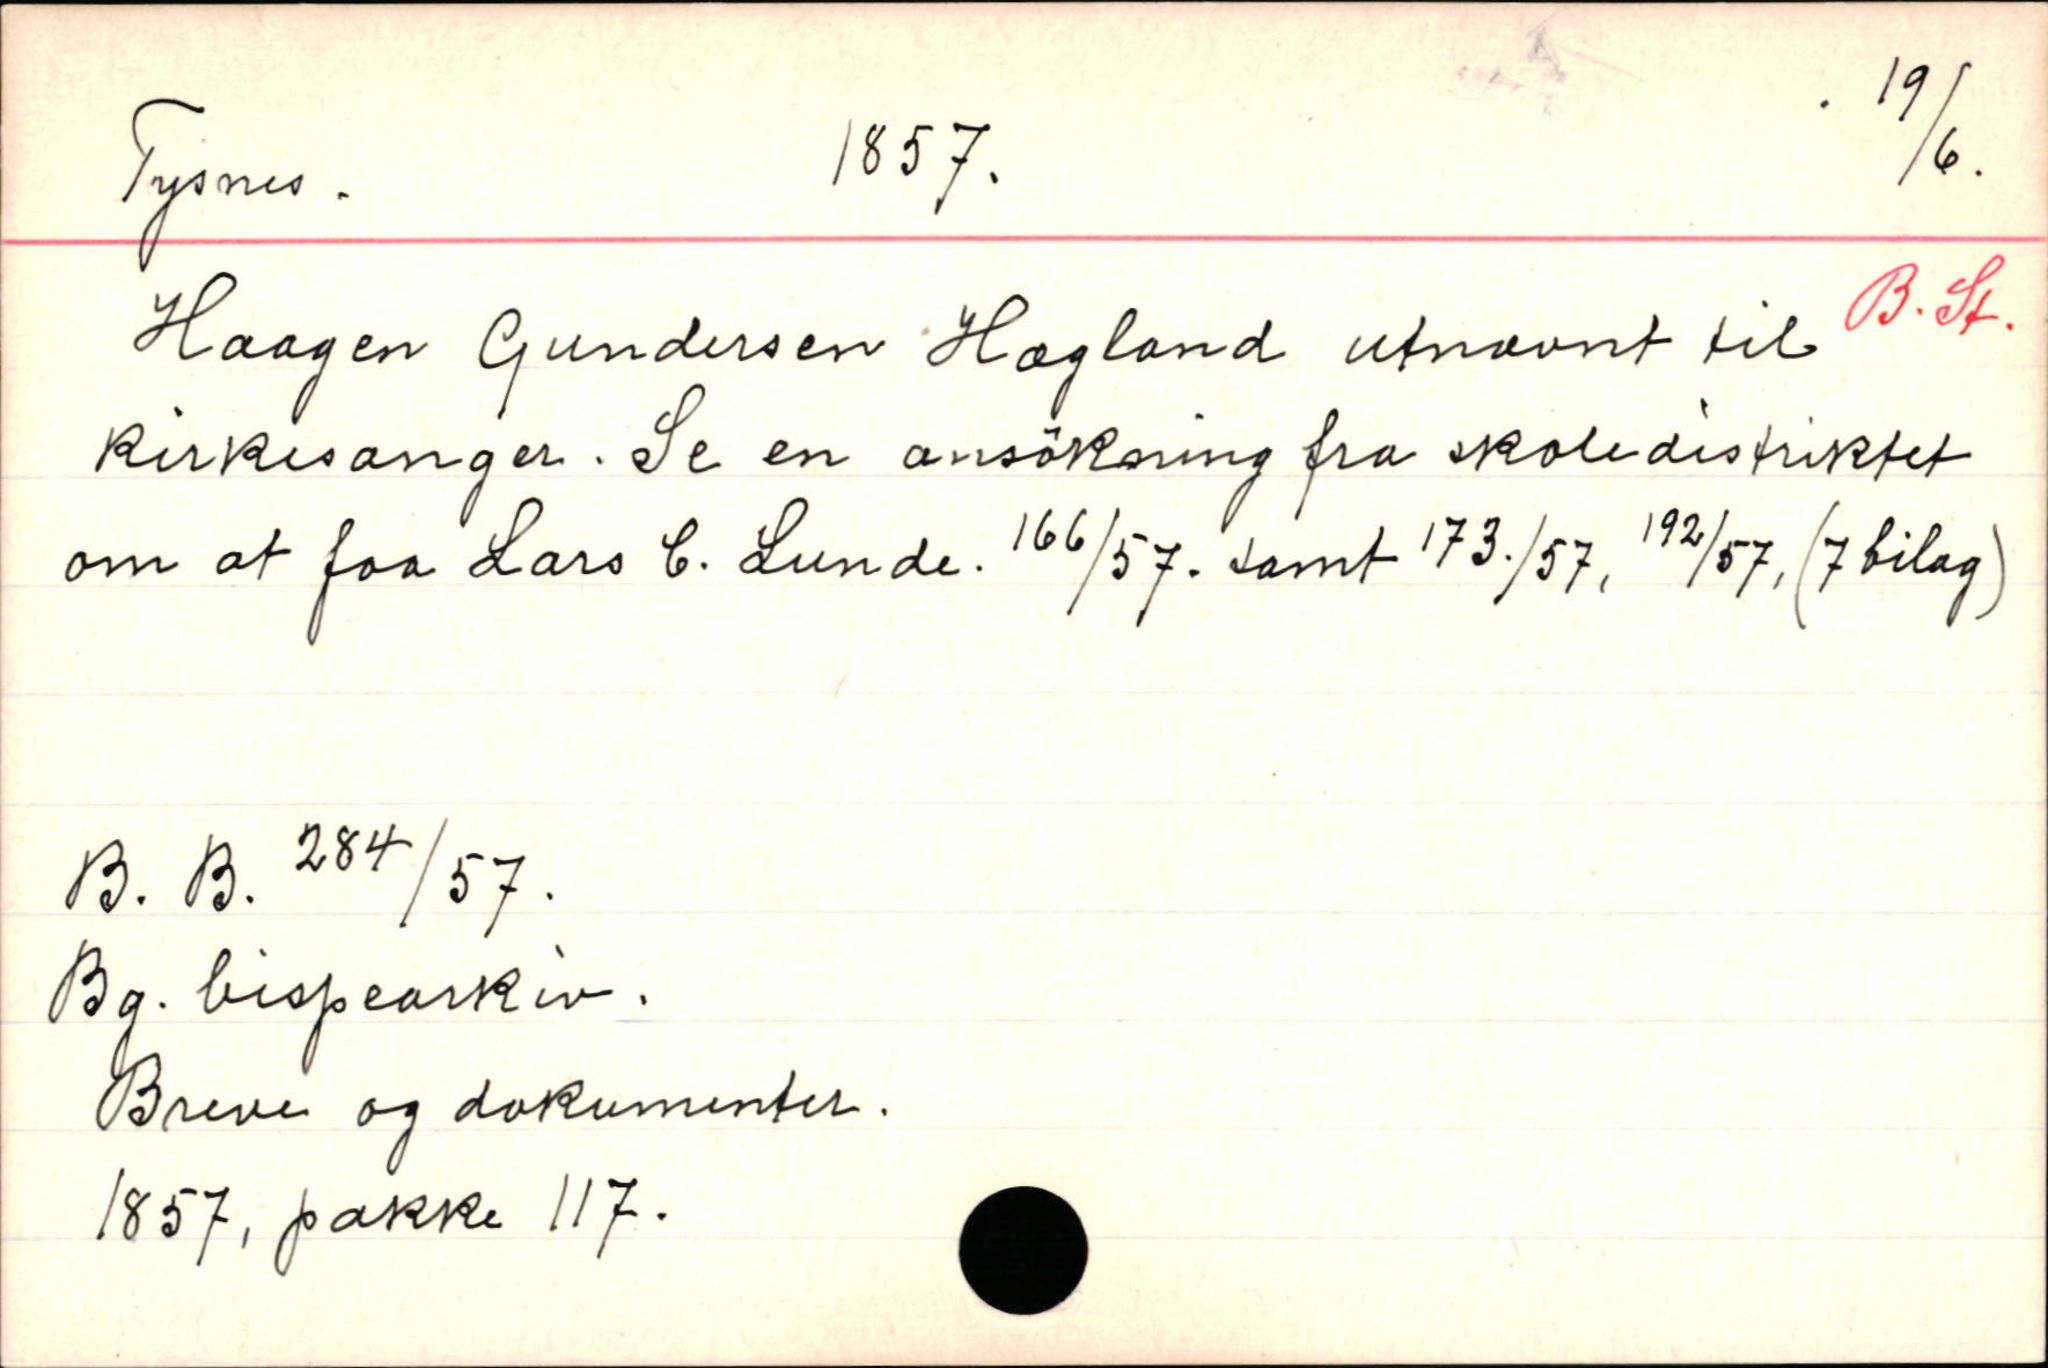 Tysnes. 1857. 19/6.
B. St.
Haagen Gundersen Hagland utnævnt til
kirkesanger. Se en ansökning fra skoledistriktet
om at faa Lars C. Lunde. 166/57. samt 173./57, 192/57, (7 bilag)
B. B. 284/57.
Bg. bispearkiv.
Breve og dokumenter.
1857, pakke 117.